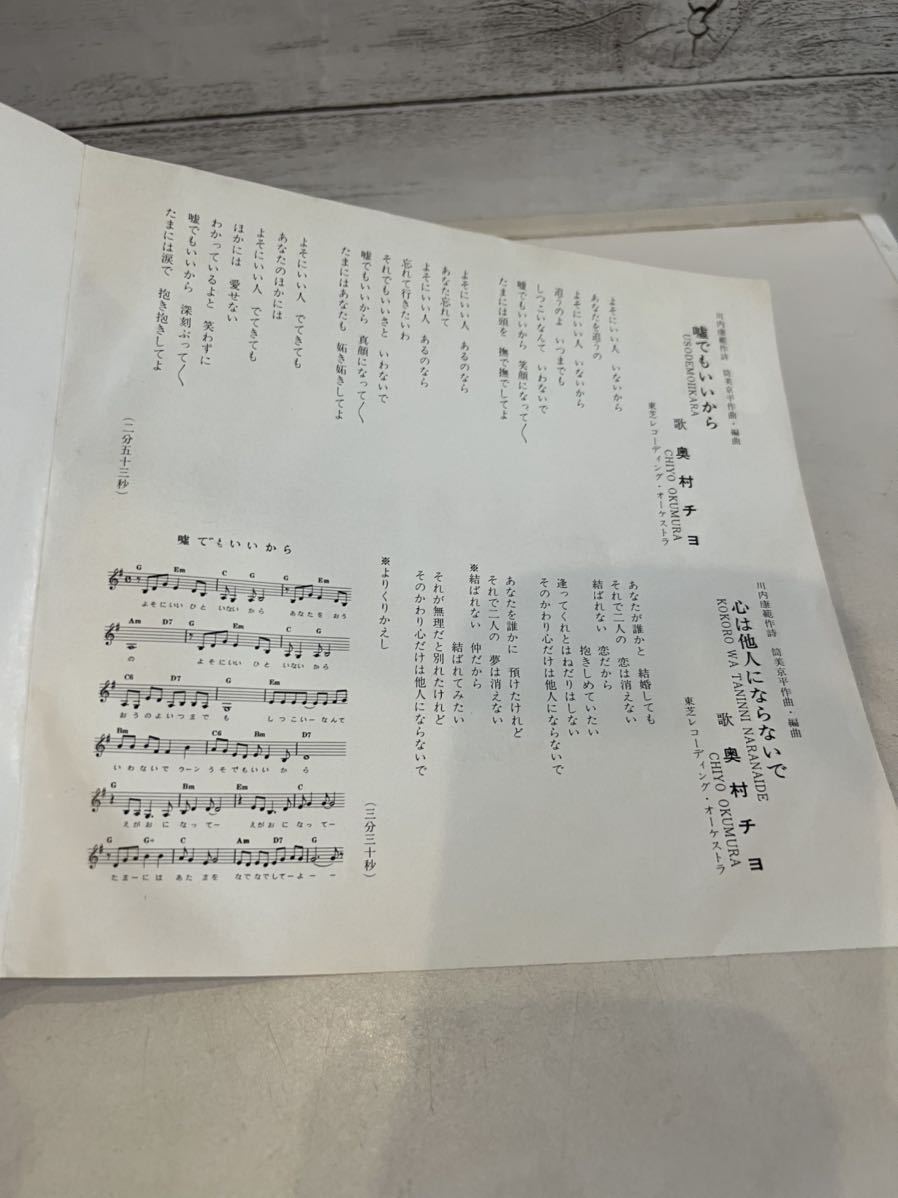 川内康範作詩 筒美京平作曲・編曲
嘘でもいいから
USODEMOIIKARA
歌 奥村チヨ
CHIYO OKUMURA
東芝レコーディング・オーケストラ
よそにいい人 いないから
あなたを追うの
よそにいい人 いないから
追うのよ いつまでも
しつこいなんて いわないで
嘘でもいいから 笑顔になって〱
たまには頭を 撫で撫でしてよ
よそにいい人 あるのなら
あなた忘れて
よそにいい人 あるのなら
忘れて行きたいわ
それでもいいさと いわないで
嘘でもいいから 真顔になって〱
たまにはあなたも 妬き妬きしてよ
よそにいい人 でてきても
あなたのほかには
よそにいい人 でてきても
ほかには 愛せない
わかっているよと 笑わずに
嘘でもいいから 深刻ぶって〱
たまには涙で 抱き抱きしてよ
(二分五十三秒)
川内康範作詩 筒美京平作曲・編曲
心は他人にならないで
KOKORO WA TANINNI NARANAIDE
歌 奥村チヨ
CHIYO OKUMURA
東芝レコーディング・オーケストラ
あなたが誰かと 結婚しても
それで二人の 恋は消えない
結ばれない 恋だから
抱きしめていたい
逢ってくれとはねだりはしない
そのかわり心だけは他人にならないで
あなたを誰かに 預けたけれど
それで二人の 夢は消えない
※結ばれない 仲だから
結ばれてみたい
それが無理だと別れたけれど
そのかわり心だけは他人にならないで
※よりくりかえし
(三分三十秒)
嘘でもいいから
G Em C G G Em
よそにいい ひと いないから あなたを おう
Am D7 G Em C G
の よそにいい ひと いないから
C6 D7 G G Em
おうのよいつまで も しつこいーなんて
Bm Em C6 Bm D7
いわないで ウーン うそでもいい か ら
G Bm Em C
えがおに なってー えがおに なってー
G G+ C Am D7 G
たまーには あた まを なでなでしてーよーー